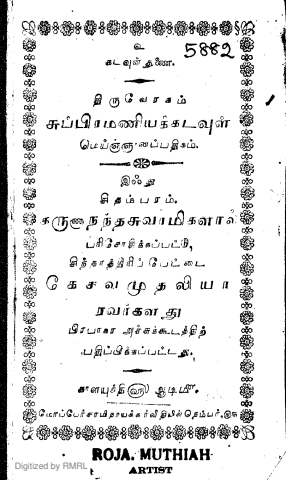 உ
5882
கடவுள் துணை.
திருவேரகம்
சுப்பிரமணியக்கடவுள்
மெய்ஞ்ஞானப்பதிகம்.
இஃது
சிதம்பரம்.
கருணாநந்தசுவாமிகளால்
பரிசோதிக்கப்பட்டு,
சிந்தாத்திரிப் பேட்டை
கேசவமுதலியா
ரவர்களது
பிரபாகர அச்சுக்கூடத்திற்
பதிப்பிக்கப்பட்டது.
காளயுக்தி ஆடி
ROJA. MUTHIAH
ARTIST
Digitized by RMRL